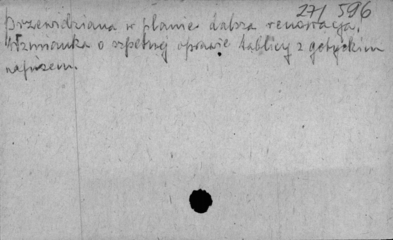 271 596
przewidziana w planie dalsza renowacja.
Wzmianka o szpetnej oprawie tablicy z gotyckim
napisem.